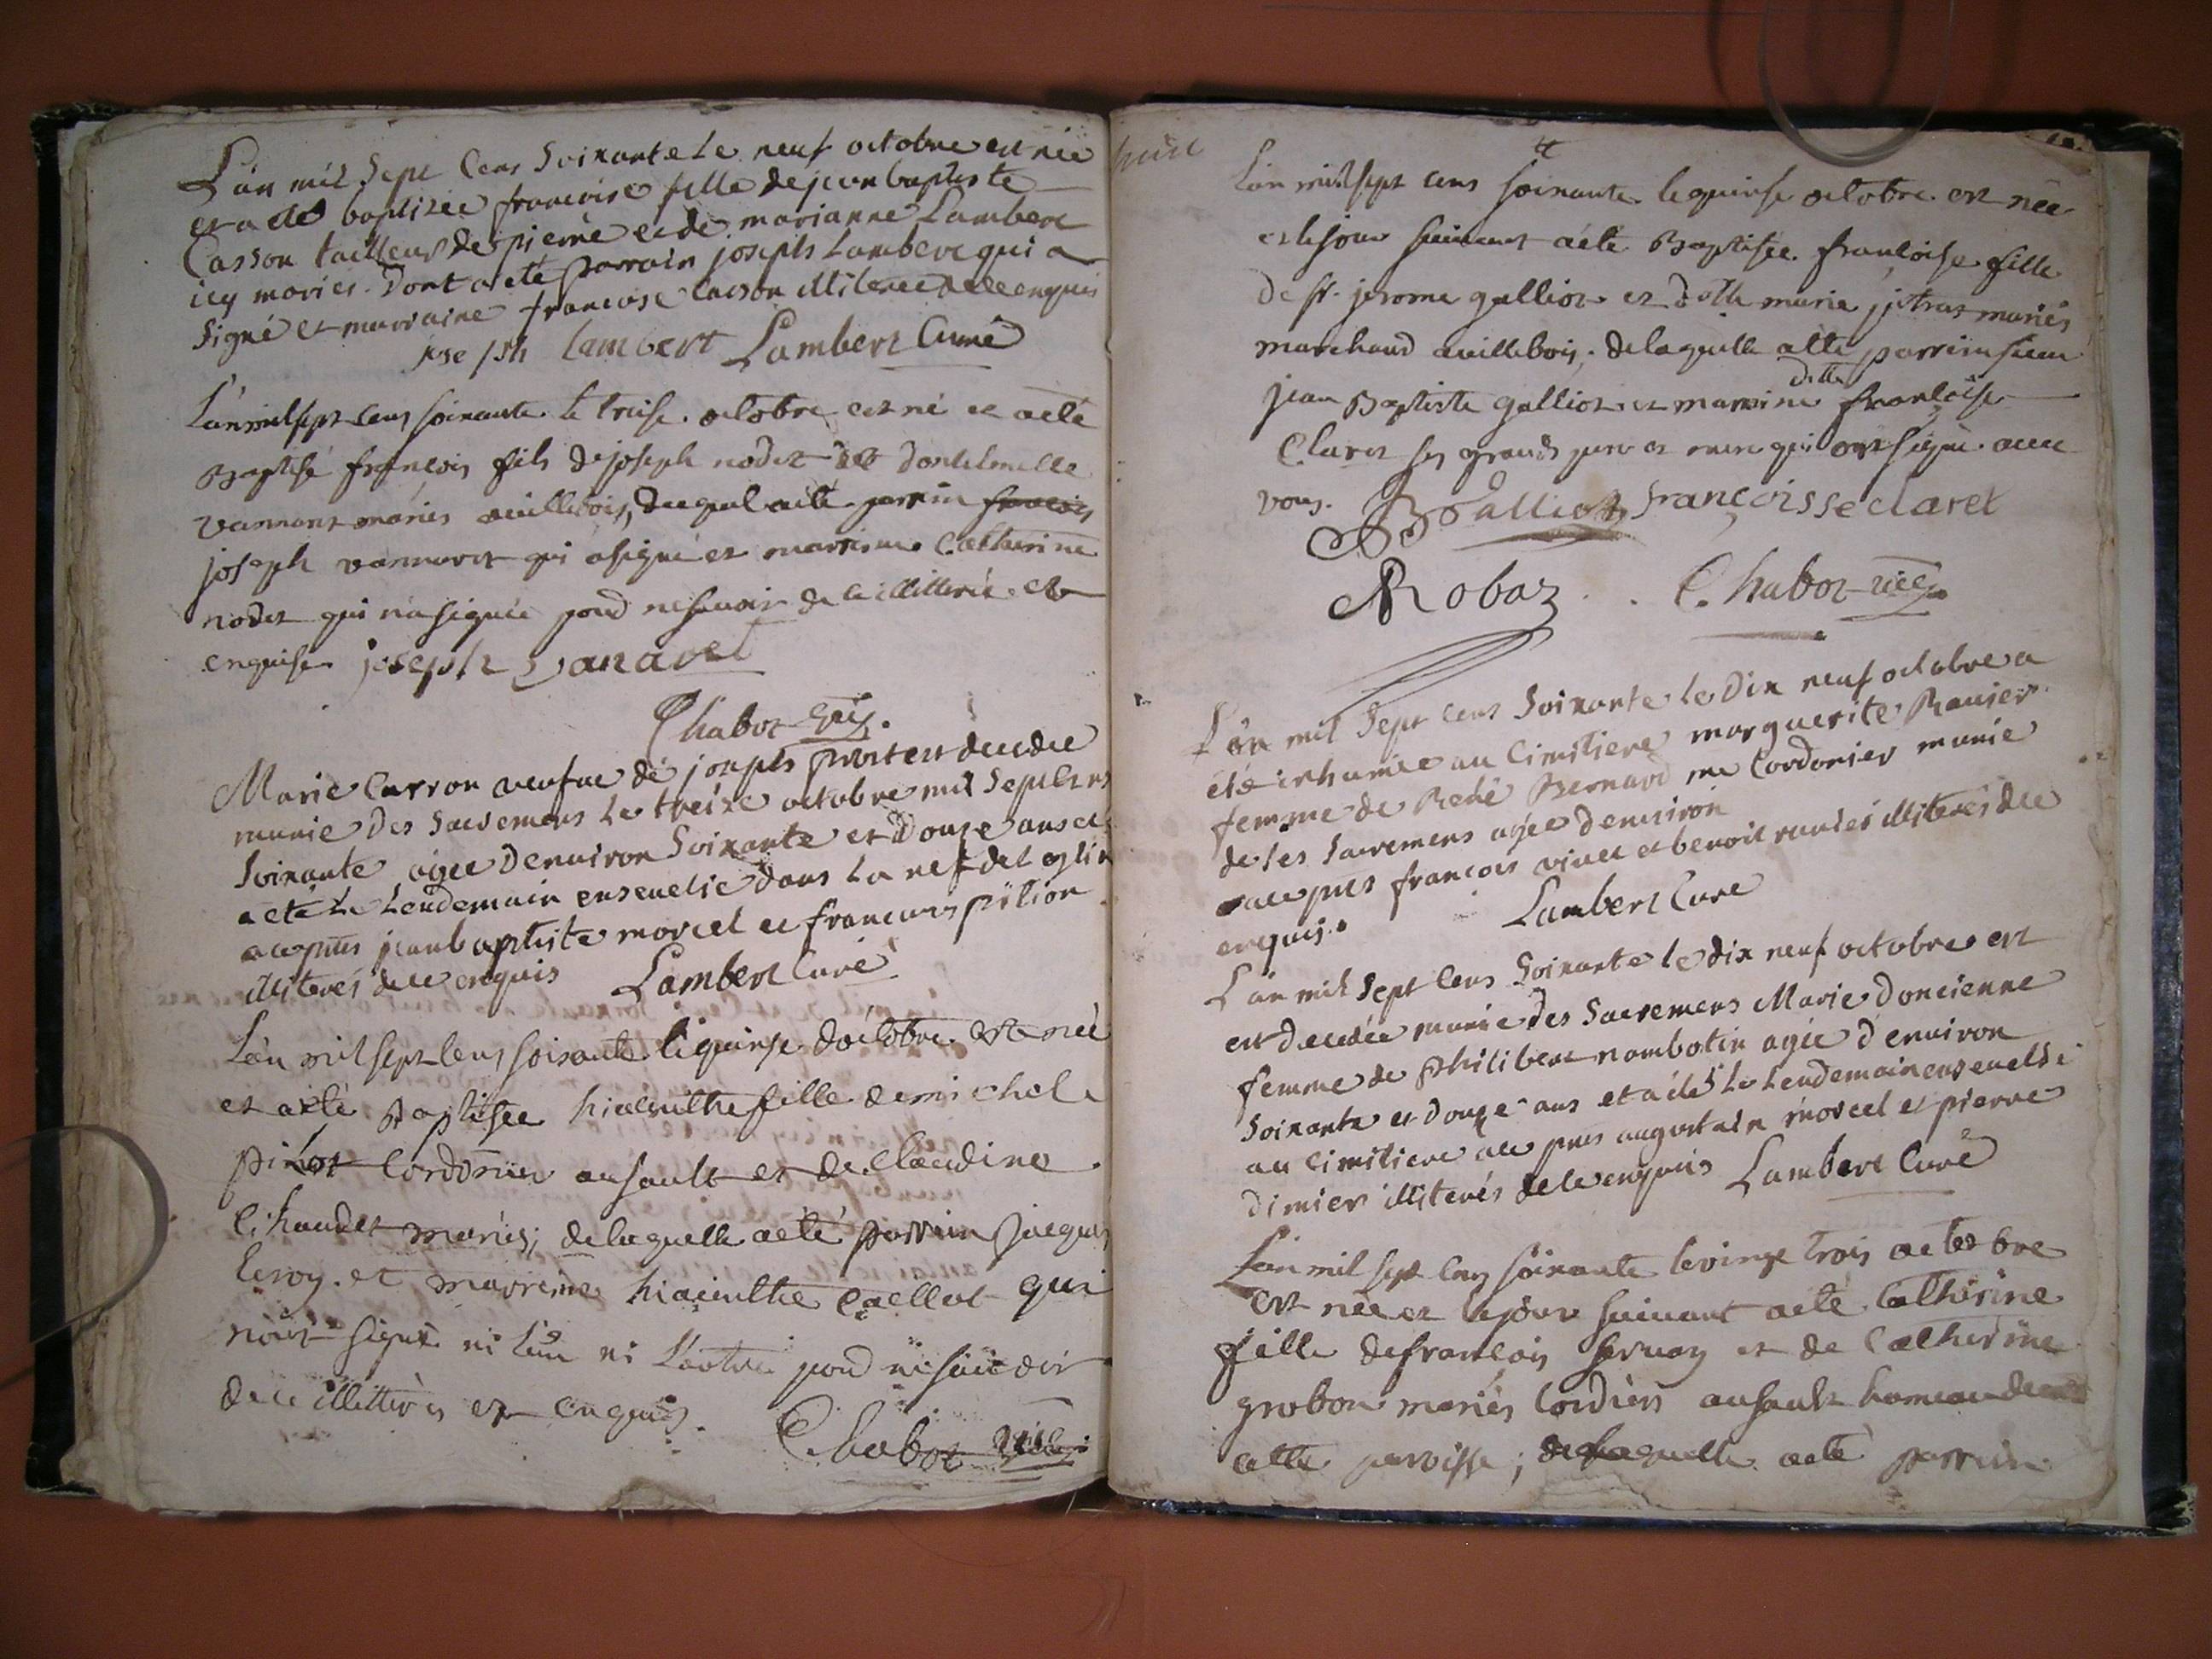 L'an mil Sept Cens Soixante Le neuf octobre est née
et a été baptizée francoise fille de jean baptiste
Casson tailleur de pierre et de marianne Lambert
icy mariés. Dont a eté parrain joseph Lambert qui a
signé et marraine francoise Casson illiterée de ce enquis
joseph lambert Lambert Curé
L'an mil sept cens soixante le treise octobre est né et a eté
Baptisé françois fils de joseph nodet et
vannaret mariés duquel a eté parrin francois
joseph vannaret qui a signé et marreine Catherine
nodet qui n'a signée pour ne savoir de ce illitterée et
enquise joseph vanaret
Chabot
Marie Carron veufue de joseph est decedée
munie des Sacremens Le treize octobre mil Sept Cens
Soixante agée d'environ Soixante et Douze ans et
a eté Le Lendemain ensevelie dans La nef de l'eglise
a ce pnts jean baptiste morcel et francois pition
illiterés de ce enquis Lambert Curé
L'an mil sept cens soixante le quinse d'octobre est née
et a eté Baptisée hiacinthe fille de michel
pinot Cordonier au sault et de Claudine
mariés; de laquelle a eté parrin jacques
leroy et marreine hiacinthe Caellot qui
n'ont signé ni l'un ni l'autre pour ne savoir
de ce illitterés et enquis.
Chabot vic
L'an mil sept cens soixante le quinse octobre est née
et le jour suivant a eté Baptisée francoise fille
de sr. jerome galliot et dlle marie jitras mariés
marchand a villebois; de laquelle a eté parrein sieur
jean Baptiste galliot et marreine dlle francoise
Claret ses grands pere et mere qui ont signé avec
vous. Galliot françoisse claret
Robaz Chabot vic
L'an mil Sept cens Soixante Le Dix neuf octobre a
été inhumée au Cimitiere marguerite Ravier
femme de René Bernard me Cordonier munie
de ses Sacremens agée d'environ
a ce pnts francois vivet et benoit ravier illiterés de ce
enquis. Lambert Curé
L'an mil Sept Cens Soixante le dix neuf octobre est
est decedée munie des Sacremens Marie Doncienne
femme de Philibert nambotin agée d'environ
Soixante et douze ans et a été Le Lendemain ensevelie
au Cimitiere a ce pnts augustain morcel et pierre
dimier illiterés de ce enquis Lambert Curé
L'an mil sept cens soixante le vingt trois octobre
est née et le jour suivant a eté Catherine
fille de francois servay et de Catherine
grobon mariés Cordiers au sault hameau de
cette paroisse; de laquelle a eté parrein